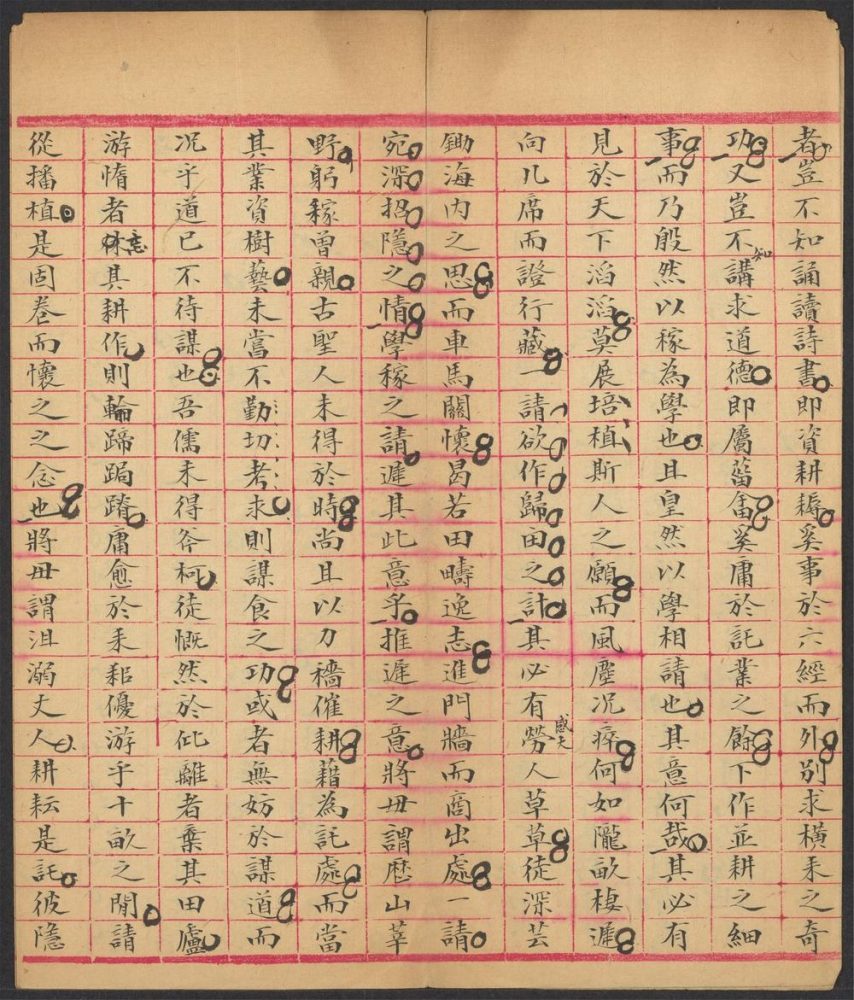 者豈不知誦讀詩書即資耕耨奚事於六經而外別求橫耒之奇
功又豈不知講求道德即屬菑畬奚庸於託業之餘下作並耕之細
事而乃殷然以稼為學也且皇然以學相請也其意何哉其必有
見於天下滔滔莫展培植斯人之願而風塵况瘁何如隴畝棲遲
向几席而證行藏一請欲作歸田之計其必有感夫勞人草草徒深芸
鋤海內之思而車馬關懷曷若田疇逸志進門牆而商出處一請
宛深招隱之情學稼之請遲其此意乎推遲之意將毋謂歷山莘
野躬稼曾親古聖人未得於時尚且以刀穡催耕藉為託處而當
其業資樹藝未嘗不勤切考求則謀食之功或者無妨於謀道而
况乎道已不待謀也吾儒未得斧柯徒慨然於仳離者棄其田廬
游惰者忘其耕作則輪蹄跼蹐庸愈於耒耜優游乎十畝之閒請
從播植是固卷而懷之之念也將毋謂沮溺丈人耕耘是託彼隱